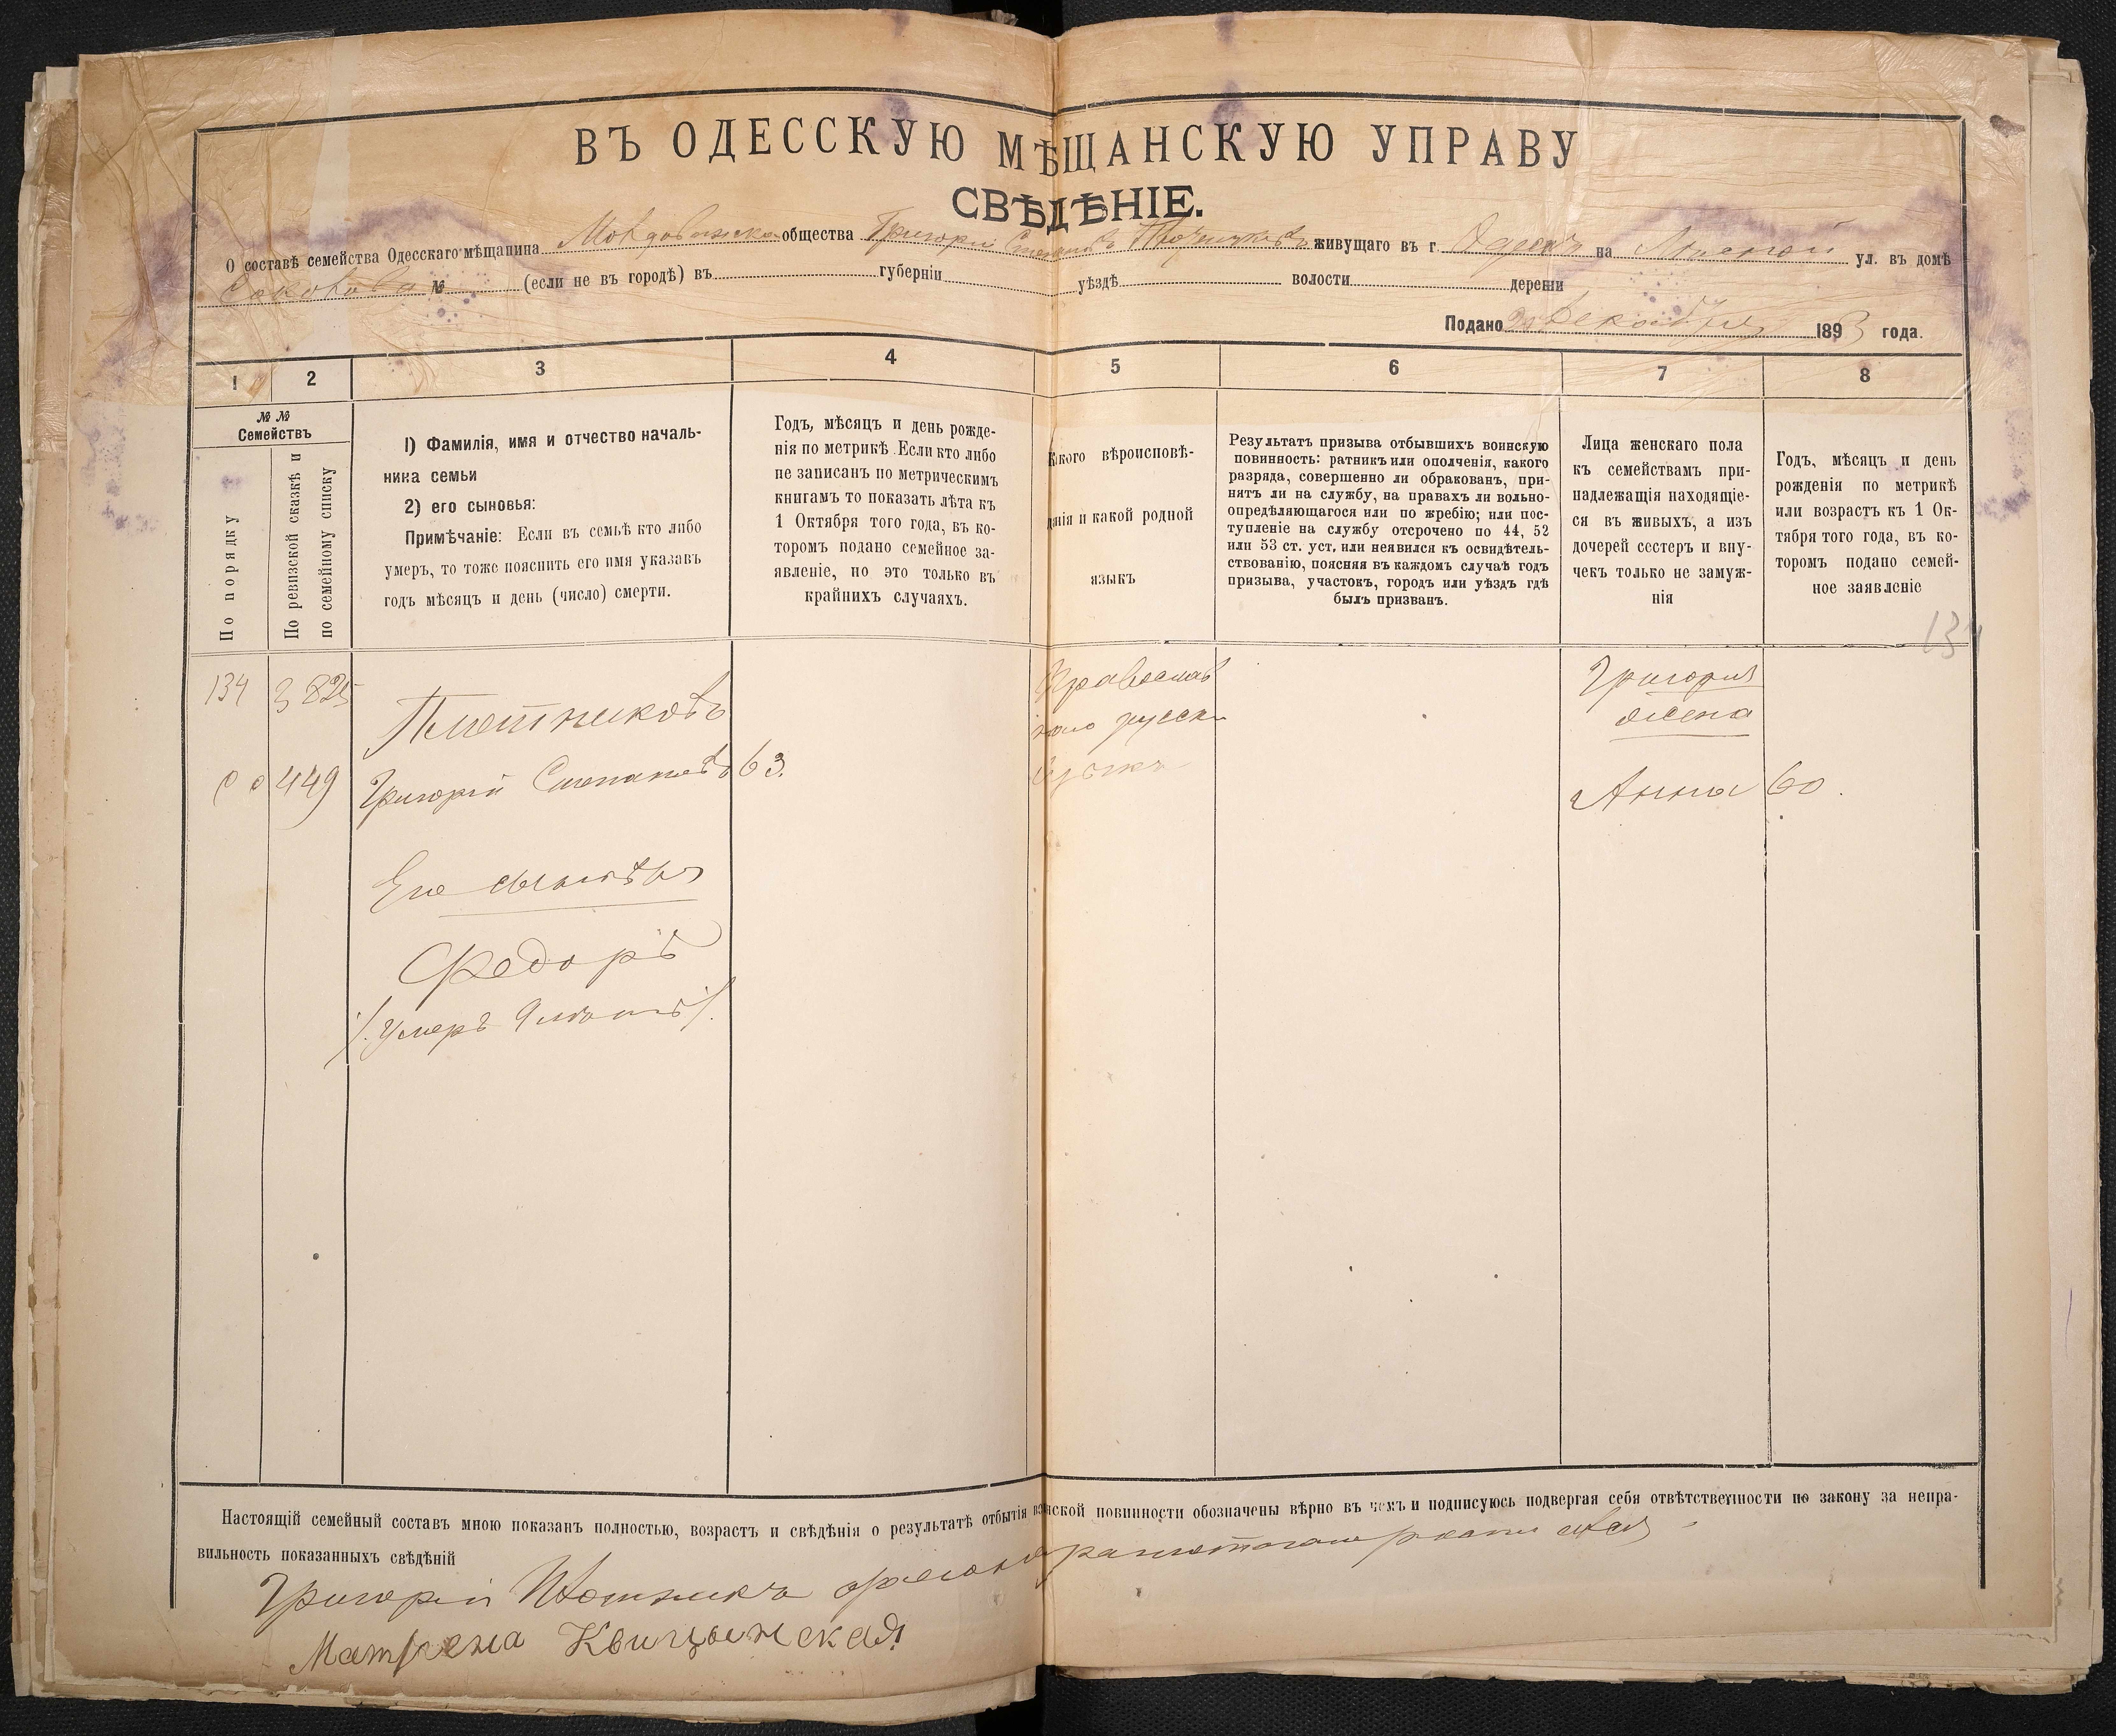 ВЪ ОДЕССКУЮ МѢЩАНСКУЮ УПРАВУ
СВѢДѢНІЕ.
О составѣ семейства Одесскаго мѣщанина общества Григорій живущаго въ г. Одессѣ на ул. въ домѣ
№ (если не въ городѣ) въ губерніи уѣздѣ волости деревни
Подано Декабря 1893 года.
1 2 3 4 5 6 7 8
№ №
Семействъ
По порядку
По ревизской сказкѣ и
по семейному списку
1) Фамилія, имя и отчество началь-
ника семьи
2) его сыновья:
Примѣчаніе: Если въ семьѣ кто либо
умеръ, то тоже пояснить его имя указавъ
годъ мѣсяцъ и день (число) смерти.
Годъ, мѣсяцъ и день рожде-
нія по метрикѣ. Если кто либо
не записанъ по метрическимъ
книгамъ то показать лѣта къ
1 Октября того года, въ ко-
торомъ подано семейное за-
явленіе, но это только въ
крайнихъ случаяхъ.
Какого вѣроисповѣ-
данія и какой родной
языкъ
Результатъ призыва отбывшихъ воинскую
повинность: ратникъ или ополченія, какого
разряда, совершенно ли обракованъ, при-
нятъ ли на службу, на правахъ ли вольно-
опредѣляющагося или по жребію; или пос-
тупленіе на службу отсрочено по 44, 52
или 53 ст. уст, или неявился къ освидѣтель-
ствованію, поясняя въ каждомъ случаѣ годъ
призыва, участокъ, городъ или уѣздъ гдѣ
былъ призванъ.
Лица женскаго пола
къ семействамъ при-
надлежащія находящіе-
ся въ живыхъ, а изъ
дочерей сестеръ и вну-
чекъ только не замуж-
нія
Годъ, мѣсяцъ и день
рожденія по метрикѣ
или возрастъ къ 1 Ок-
тября того года, въ ко-
торомъ подано семей-
ное заявленіе
134
134 3825
Плотниковъ
449 Григорій Степановъ 63.
Православ
русск
Григорія
жена
Анна 60.
Его сыновья
Федоръ
/. Умеръ ./.
Настоящій семейный составъ мною показанъ полностью, возрастъ и свѣдѣнія о результатѣ отбытія воинской повинности обозначены вѣрно въ чемъ и подписуюсь подвергая себя отвѣтственности по закону за непра-
вильность показанныхъ свѣдѣній
Григорій
Матрена Квицынская